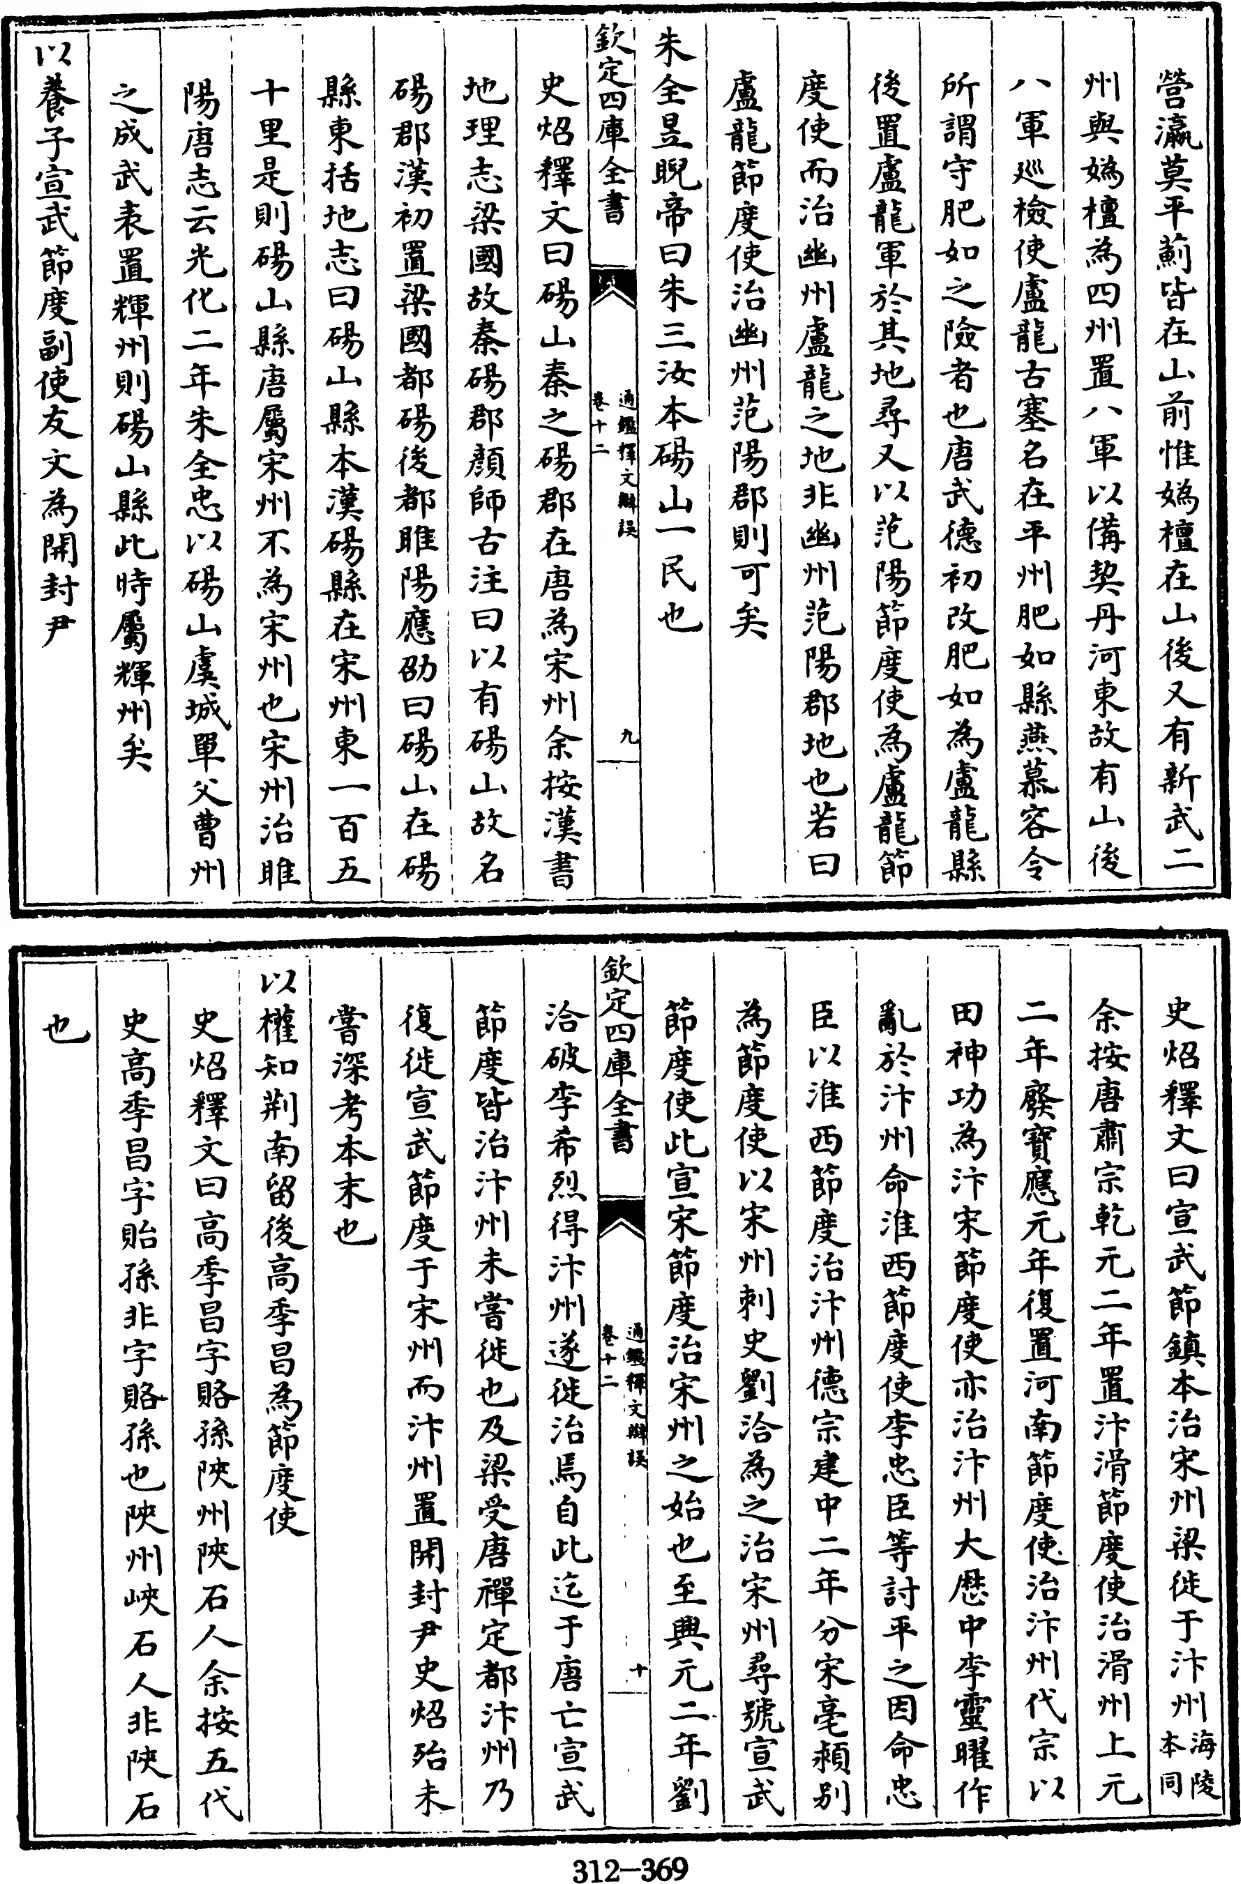 營瀛莫平薊皆在山前惟媯檀在山後又有新武二
州與媯檀為四州置八軍以備契丹河東故有山後
八軍廵檢使盧龍古塞名在平州肥如縣燕慕容令
所謂守肥如之險者也唐武德初改肥如為盧龍縣
後置盧龍軍於其地尋又以范陽節度使為盧龍節
度使而治幽州盧龍之地非幽州范陽郡地也若曰
盧龍節度使治幽州范陽郡則可矣
朱全昱睨帝曰朱三汝本碭山一民也
欽定四庫全書
通鑑釋文辯誤
卷十二
九
史炤釋文曰碭山秦之碭郡在唐為宋州余按漢書
地理志梁國故秦碭郡顏師古注曰以有碭山故名
碭郡漢初置梁國都碭後都睢陽應劭曰碭山在碭
縣東括地志曰碭山縣本漢碭縣在宋州東一百五
十里是則碭山縣唐屬宋州不為宋州也宋州治睢
陽唐志云光化二年朱全忠以碭山虞城單父曹州
之成武表置輝州則碭山縣此時屬輝州矣
以養子宣武節度副使友文為開封尹
史炤釋文曰宣武節鎮本治宋州梁徙于汴州海陵本同
余按唐肅宗乾元二年置汴滑節度使治滑州上元
二年廢寶應元年復置河南節度使治汴州代宗以
田神功為汴宋節度使亦治汴州大歷中李靈曜作
亂於汴州命淮西節度使李忠臣等討平之因命忠
臣以淮西節度治汴州德宗建中二年分宋亳潁别
為節度使以宋州刺史劉洽為之治宋州尋號宣武
節度使此宣宋節度治宋州之始也至興元二年劉
欽定四庫全書
通鑑釋文辯誤
卷十二
十
洽破李希烈得汴州遂徙治焉自此迄于唐亡宣武
節度皆治汴州未嘗徙也及梁受唐禪定都汴州乃
復徙宣武節度于宋州而汴州置開封尹史炤殆未
嘗深考本末也
以權知荆南留後高季昌為節度使
史炤釋文曰高季昌字賂孫陜州陜石人余按五代
史高季昌字貽孫非字賂孫也陜州峽石人非陜石
也
312-369